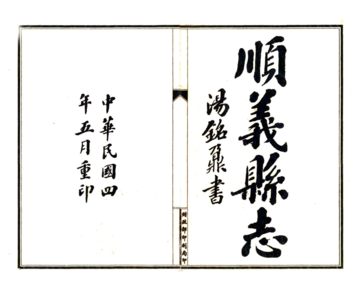 順義縣志
湯銘鼐書
中華民國四
年五月重印